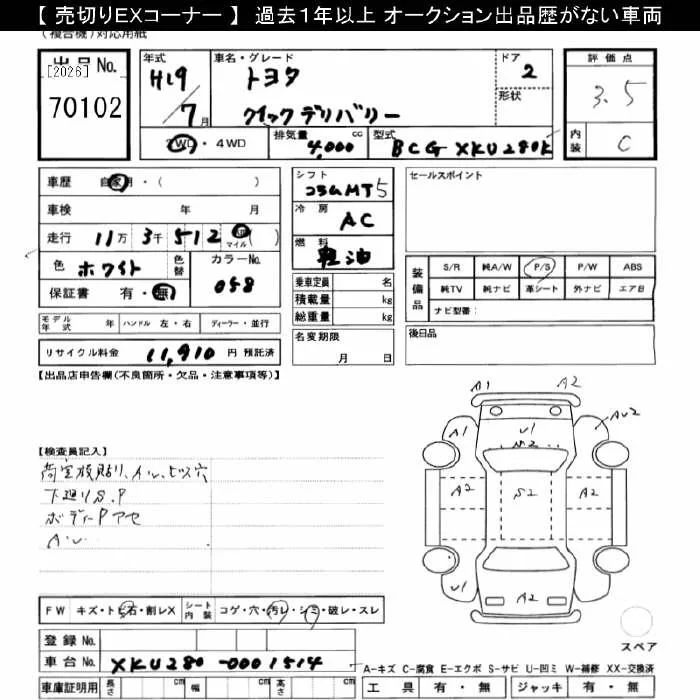 【 売切りEXコーナー 】 過去1年以上 オークション出品歴がない車両
(複合機)対応用紙
出品No.
[2026]
70102
年式
H19 / 7月
車名・グレード
トヨタ
クイックデリバリー
ドア
2
形状
評価点
3.5
内装
C
2WD・4WD
排気量
4,000 cc
型式
BCG XKU280K
車歴 自家用・( )
車検 年 月
走行 11万 3千 512 マイル( )
色 ホワイト
色替
カラーNo.
058
保証書 有・無
シフト
コラムMT5
冷房
AC
燃料
軽油
乗車定員 名
積載量 kg
総重量 kg
セールスポイント
装備品
S/R 純A/W P/S P/W ABS
純TV 純ナビ 革シート 外ナビ エアB
ナビ型番:
モデル年式 年 ハンドル 左・右 ディーラー・並行
名変期限
月 日
後日品
リサイクル料金 11,910 円 預託済
【出品店申告欄(不良箇所・欠品・注意事項等)】
A1 A2
A1 U1 AU2
A2 S2 A2
U1 A2
【検査員記入】
下廻りS.P
ボディーPアセ
FW キズ・トビ石・割レX
シート内装 コゲ・穴・汚レ・シミ・破レ・スレ
スペア
登録No.
車台No. XKU280-0001514
A-キズ C-腐食 E-エクボ S-サビ U-凹ミ W-補修 XX-交換済
車庫証明用 長さ cm 幅 cm 高さ cm
工具 有・無 ジャッキ 有・無